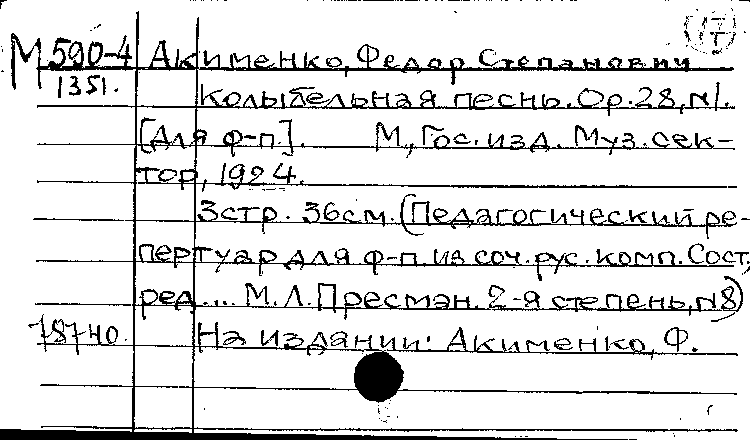 М 590-4 Акименко, Федор Степанович
1351.
Колыбельная песнь. Op. 28, N1.
[Для ф-п]. М., Гос. изд. Муз. сек-
тор, 1924.
3стр. 36см. (Педагогический ре-
пертуар для ф-п. из соч. рус. комп. Сост.,
ред.... М.Л. Пресман. 2-я степень, N8)
78740. На издании: Акименко, Ф.